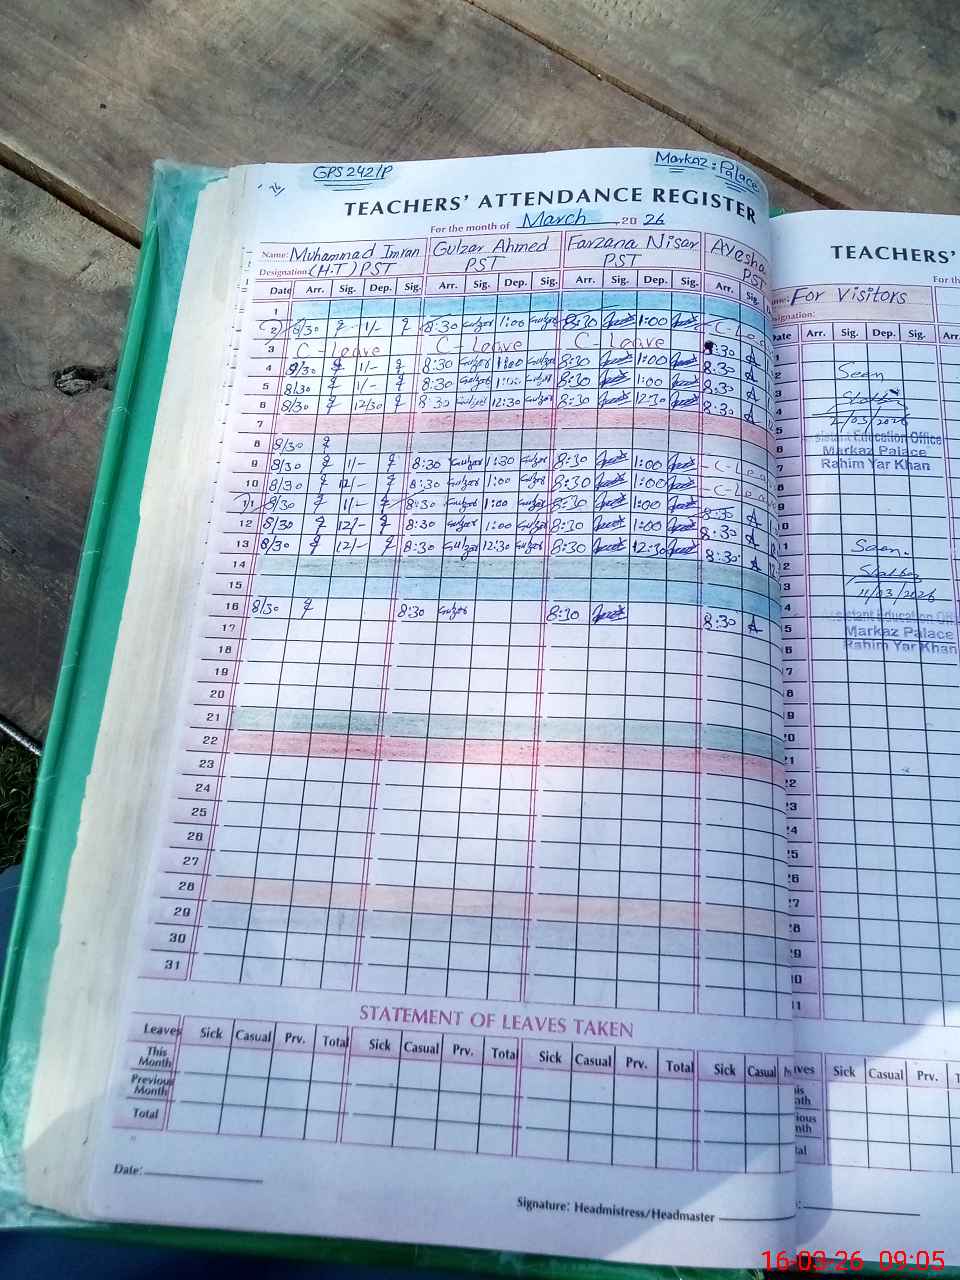 GPS 242/P
Markaz: Palace
TEACHERS' ATTENDANCE REGISTER
For the month of March 20 26
Name: Muhammad Imran Gulzar Ahmed Farzana Nisar Ayesha
Designation: (H.T) PST PST PST PST
Date Arr. Sig. Dep. Sig. Arr. Sig. Dep. Sig. Arr. Sig. Dep. Sig. Arr. Sig.
1
2 8/30 1/- 8:30 Gulzar 1:00 Gulzar 8:30 1:00 C-Leave
3 C-Leave C-Leave C-Leave 8:30
4 8/30 1/- 8:30 Gulzar 1:00 Gulzar 8:30 1:00 8:30
5 8/30 1/- 8:30 Gulzar Gulzar 8:30 1:00 8:30
6 8/30 12/30 8:30 Gulzar 12:30 Gulzar 8:30 12:30 8:30
7
8 8/30
9 8/30 1/- 8:30 Gulzar 1:30 Gulzar 8:30 1:00 C-Leave
10 8/30 12/- 8:30 Gulzar 1:00 Gulzar 8:30 1:00 C-Leave
11 8/30 1/- 8:30 Gulzar 1:00 Gulzar 8:30 1:00 8:30
12 8/30 12/- 8:30 Gulzar 1:00 Gulzar 8:30 1:00 8:30
13 8/30 12/- 8:30 Gulzar 12:30 Gulzar 8:30 12:30 8:30
14
15
16 8/30 8:30 Gulzar 8:30 8:30
17
18
19
20
21
22
23
24
25
26
27
28
29
30
31
STATEMENT OF LEAVES TAKEN
Leaves Sick Casual Prv. Total Sick Casual Prv. Total Sick Casual Prv. Total Sick Casual
This Month
Previous Month
Total
Date:
Signature: Headmistress/Headmaster
TEACHERS'
For Visitors
Arr. Sig. Dep. Sig. Arr.
Seen
/03/2026
Assistant Education Office
Markaz Palace
Rahim Yar Khan
Seen.
11/03/2026
Assistant Education Off
Markaz Palace
Rahim Yar Khan
Sick Casual Prv.
16-03-26 09:05